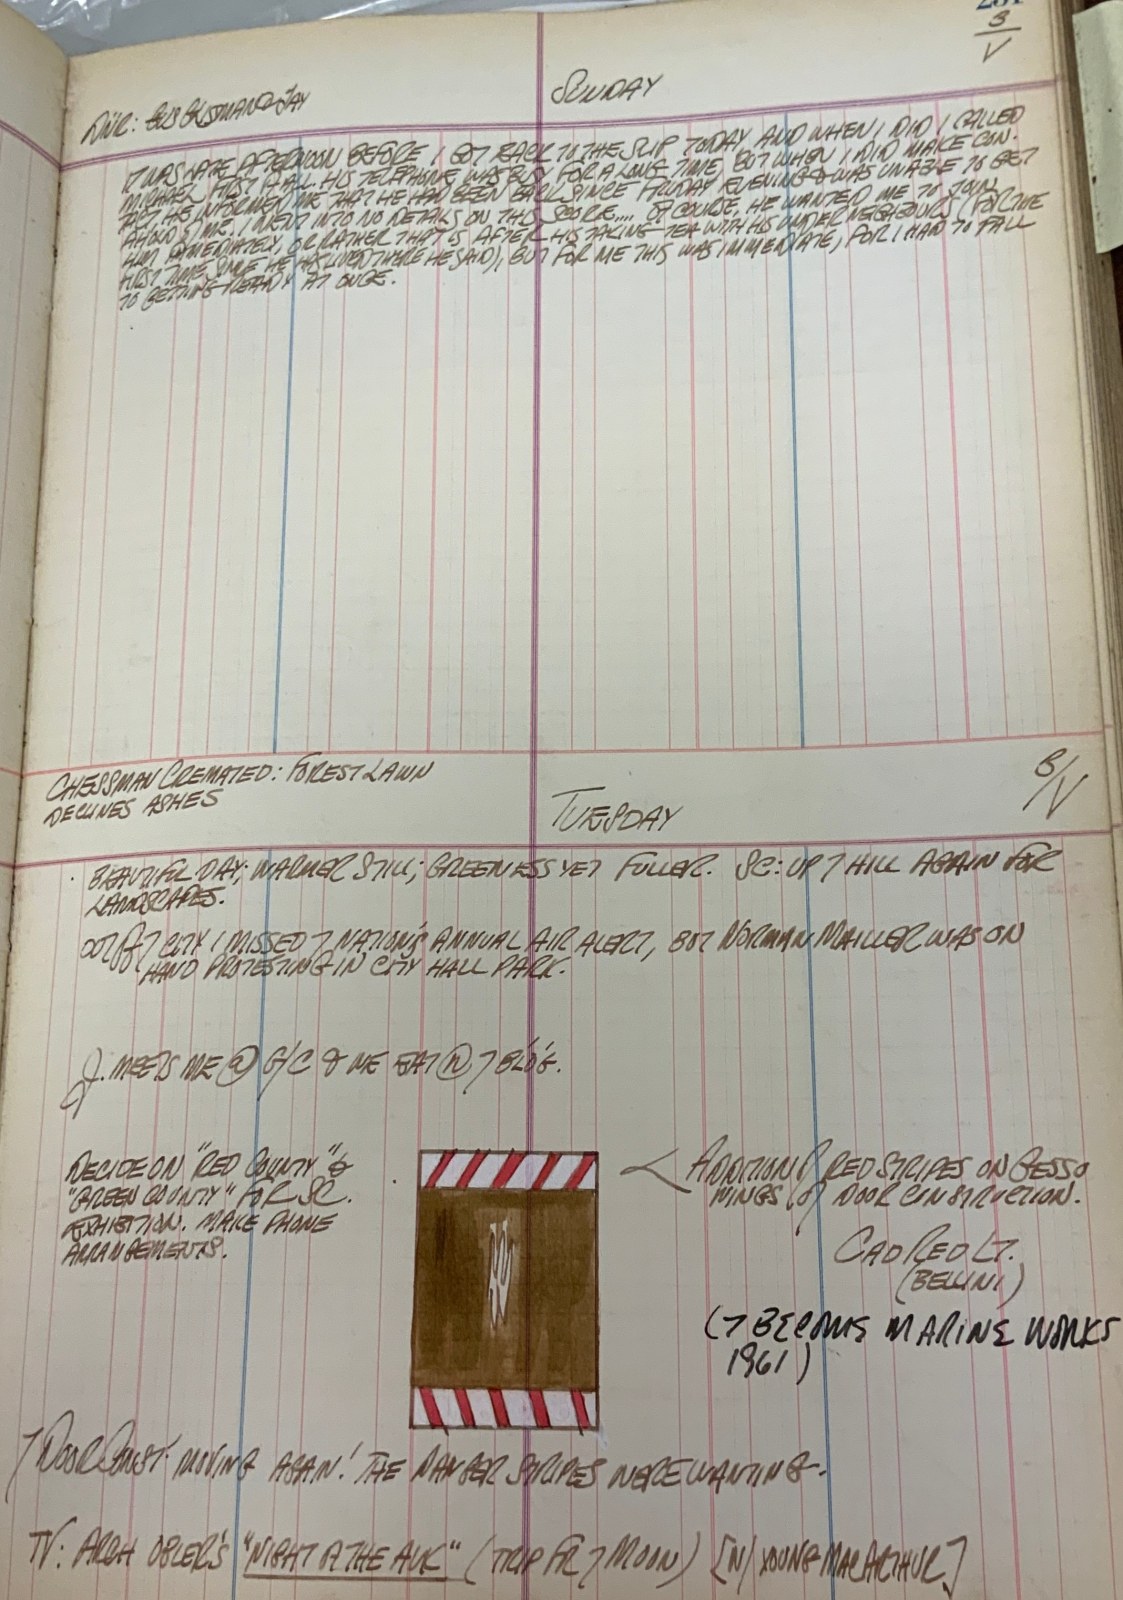 3
V
DINR: GUS GUSMANO & JAY
SUNDAY
IT WAS LATE AFTERNOON BEFORE I GOT BACK TO THE SLIP TODAY, AND WHEN I DID I CALLED
MICHAEL FIRST HALL. HIS TELEPHONE WAS BUSY FOR A LONG TIME, BUT WHEN I DID MAKE CON-
TACT HE INFORMED ME THAT HE HAD BEEN BACK SINCE FRIDAY EVENING & WAS UNABLE TO GET
AHOLD OF ME. I WENT INTO NO DETAILS ON THIS SCORE.... OF COURSE, HE WANTED ME TO JOIN
HIM IMMEDIATELY, OR RATHER THAT IS AFTER HIS TAKING TEA WITH HIS UNDER NEIGHBOURS (FOR THE
FIRST TIME SINCE HE HAS LIVED THERE HE SAID), BUT FOR ME THIS WAS IMMEDIATE, FOR I HAD TO FALL
TO GETTING READY AT ONCE.
CHESSMAN CREMATED: FOREST LAWN
DECLINES ASHES
3/V
TUESDAY
BEAUTIFUL DAY; WARMER STILL; GREENNESS YET FULLER. SC: UP 7 HILL AGAIN FOR
LANDSCAPES.
OUT OF 7 CITY I MISSED 7 NATION'S ANNUAL AIR ALERT, BUT NORMAN MAILLER WAS ON
HAND PROTESTING IN CITY HALL PARK.
J. MEETS ME @ G/C & WE EAT @ 7 BLD'G.
DECIDE ON "RED COUNTY" &
"GREEN COUNTY" FOR SC.
EXHIBITION. MAKE PHONE
ARRANGEMENTS.
ADDITION OF RED STRIPES ON GESSO
WINGS OF DOOR CONSTRUCTION.
CAD RED LT.
(BELLINI)
(7 BECOME MARINE WORKS
1961)
7 DOOR CONST. MOVING AGAIN! THE DANGER STRIPES WERE WANTING.
TV: ARCH OBLER'S "NIGHT OF THE AUK" (TRIP FR 7 MOON) [W/ YOUNG MACARTHUR]